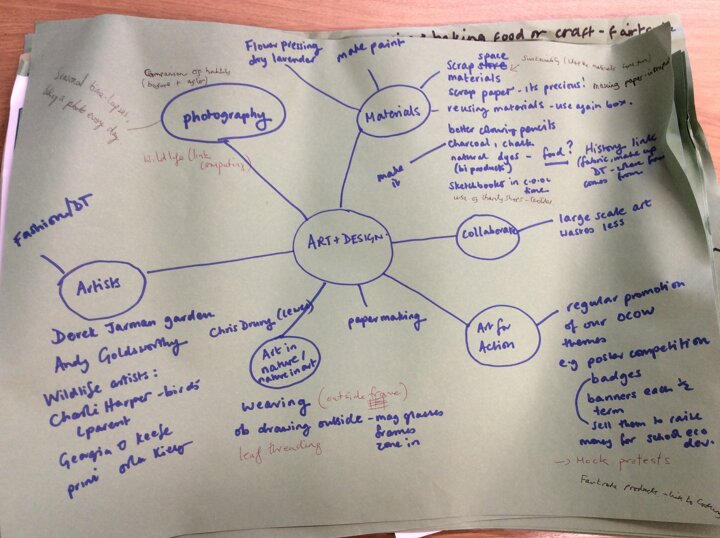 baking food or craft - fairtrade
Flower pressing
dry lavender
make paint
space
Scrap store
materials
scrap paper - its precious!
making paper
reusing materials - use again box.
Materials
better drawing pencils
charcoal, chalk
natural dyes - food?
(bi products)
make it
Sketchbooks in c.o.o.l
time
History link
(fabric, make up
DT - where from
comes from)
Comparison of habitats
(before + after)
Several time-lapses,
day a photo every day
photography
Wildlife (link
computing)
ART + DESIGN
Collaborate
large scale art
wastes less
Fashion/DT
Artists
Derek Jarman garden
Andy Goldsworthy
Wildlife artists:
Charli Harper - birds
Georgia O Keefe
print orla Kiely
Chris Drury (Lewes)
Art in
nature/
nature in art
weaving (outside frame)
ob drawing outside - mag glasses
frames
zone in
leaf threading
papermaking
Art for
Action
regular promotion
of our OCOW
themes
e.g poster competition
badges
banners each 1/2
term
sell them to raise
money for school eco
dev.
→ Mock protests
Fairtrade products - link to cooking